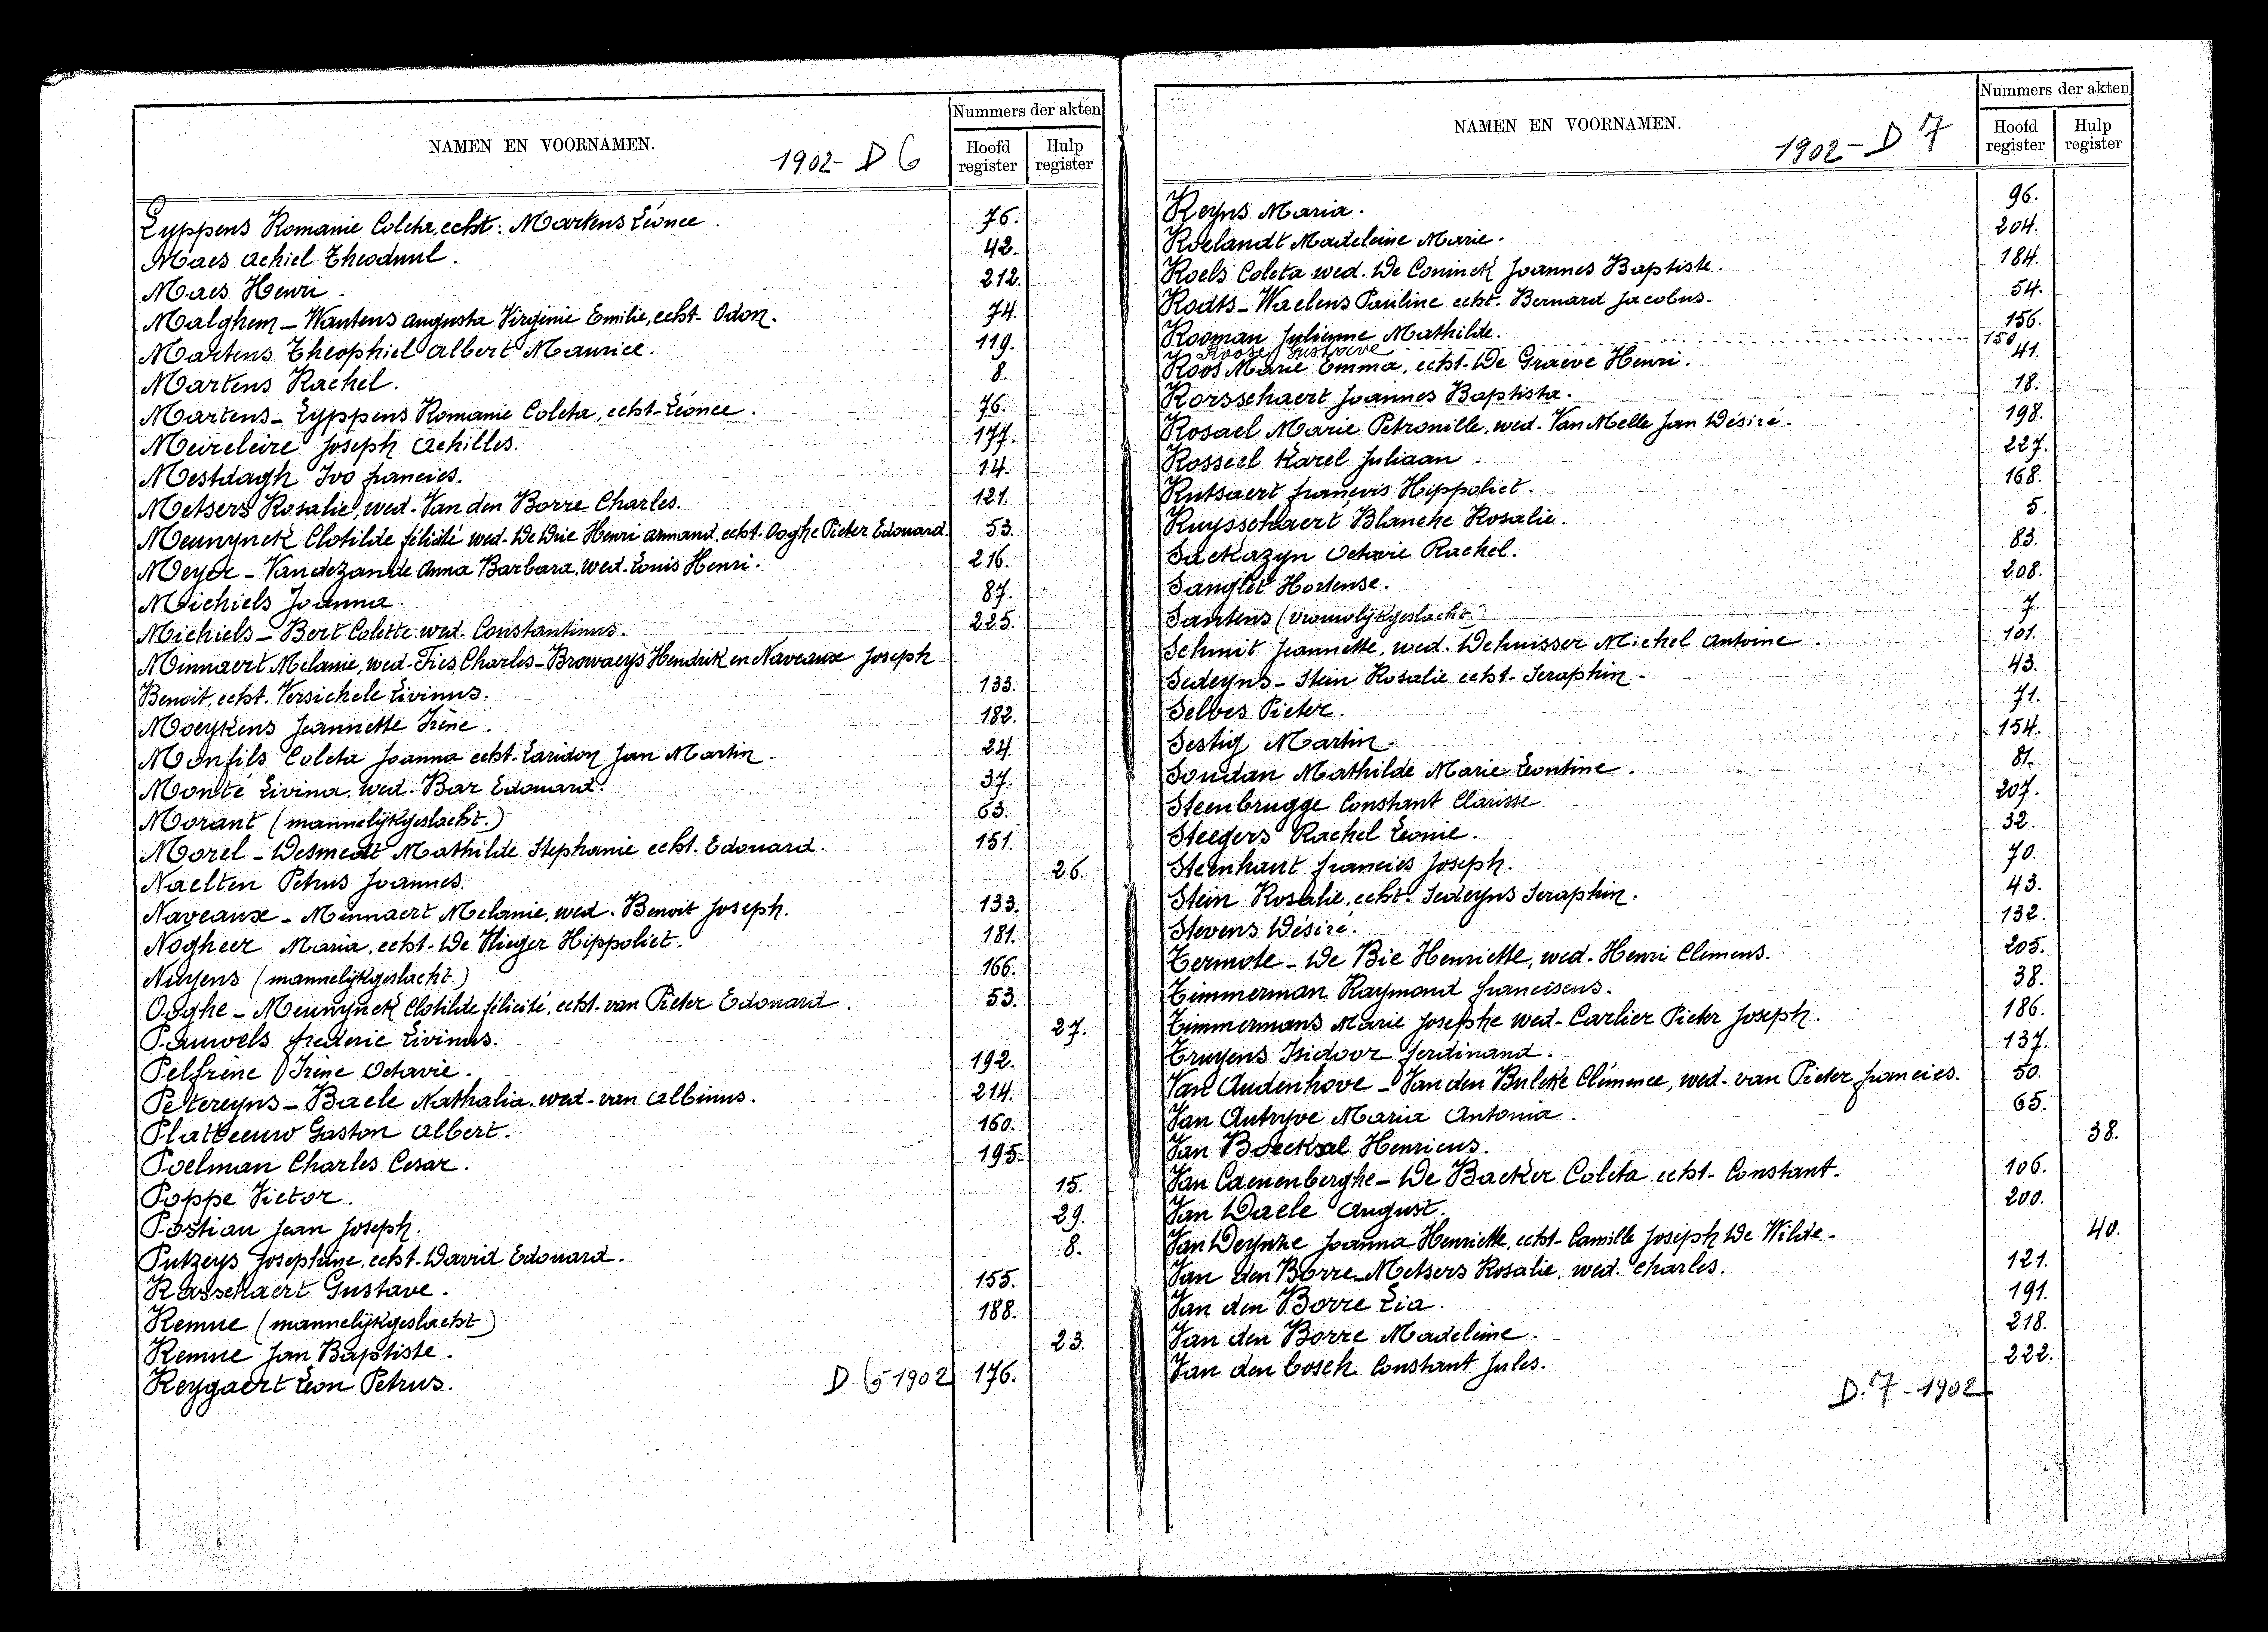 Nummers der akten
NAMEN EN VOORNAMEN.
1902 - D 6
Hoofd register
Hulp register
Lyppens Romanie Coleta, echt. Martens Léonce. 76.
Maes Achiel Theoduul. 42.
Maes Henri. 212.
Malghem - Wautens Augusta Virginie Emilie, echt. Odon. 74.
Martens Theophiel Albert Maurice. 119.
Martens Rachel. 8.
Martens - Lyppens Romanie Coleta, echt. Léonce. 76.
Meireleire Joseph Achilles. 177.
Mestdagh Ivo Francies. 14.
Metsers Rosalie, wed. Van den Borre Charles. 121.
Meunynck Clotilde félicité wed. De Drie Henri Armand, echt. Ooghe Pieter Edouard. 53.
Meyer - Vandezande Anna Barbara, wed. Louis Henri. 216.
Michiels Joanna. 87.
Michiels - Bert Colette wed. Constantinus. 225.
Minnaert Melanie, wed. Fies Charles - Browaeys Hendrik en Naveaux Joseph
Benoit, echt. Versichele Livinus. 133.
Moeykens Jeannette Irène. 182.
Monfils Coleta Joanna echt. Laridon Jan Martin. 24.
Monté Livina, wed. Bar Edouard. 37.
Morant (mannelijkgeslacht.) 63.
Morel - Desmedt Mathilde Stephanie echt. Edouard. 151.
Naelten Petrus Joannes. 26.
Naveaux - Minnaert Melanie, wed. Benoit Joseph. 133.
Nogheer Maria, echt. De Vlieger Hippoliet. 181.
Nuyens (mannelijkgeslacht.) 166.
Ooghe - Meunynck Clotilde félicité, echt. van Pieter Edouard. 53.
Pauwels frederic Livinus. 27.
Pelfrène Irène Octavie. 192.
Petereyns - Baele Nathalia, wed. van Albinus. 214.
Platteeuw Gaston Albert. 160.
Poelman Charles Cesar. 195.
Poppe Victor. 15.
Postiau Jean Joseph. 29.
Putzeys Josephine, echt. David Edouard. 8.
Rasschaert Gustave. 155.
Remue (mannelijkgeslacht) 188.
Remue Jan Baptiste. 23.
Reygaert Léon Petrus. 176.
D 6 - 1902
Nummers der akten
NAMEN EN VOORNAMEN.
1902 - D 7
Hoofd register
Hulp register
Reyns Maria. 96.
Roelandt Madeleine Marie. 204.
Roels Coleta wed. De Coninck Joannes Baptiste. 184.
Rodts - Waelens Pauline echt. Bernard Jacobus. 54.
Rooman Julienne Mathilde. 156.
Roose Gustaeve 150
Roos Marie Emma, echt. De Graeve Henri. 41.
Rorsschaert Joannes Baptista. 18.
Rosael Marie Petronille, wed. Van Melle Jan Désiré. 198.
Rosseel Karel Juliaan. 227.
Rutsaert françois Hippoliet. 168.
Ruysschaert Blanche Rosalie. 5.
Sackazyn Octavie Rachel. 83.
Sanglet Hortense. 208.
Santens (vrouwlijkgeslacht.) 7.
Schmit Jeannette, wed. Dehuisser Michel Antoine. 101.
Sedeyns - Stein Rosalie echt. Seraphin. 43.
Selbes Pieter. 71.
Sestig Martin. 154.
Soudan Mathilde Marie Leontine. 81.
Steenbrugge Constant Clarisse. 207.
Steegers Rachel Leonie. 32.
Steenhaut francies Joseph. 70.
Stein Rosalie, echt. Sedeyns Seraphin. 43.
Stevens Désiré. 132.
Termote - De Bie Henriette, wed. Henri Clemens. 205.
Timmerman Raymond franciscus. 38.
Timmermans Marie Josephe wed. Carlier Pieter Joseph. 186.
Truyens Isidoor ferdinand. 137.
Van Audenhove - Van den Bulcke Clémence, wed. van Pieter francies. 50.
Van Autryve Maria Antonia. 65.
Van Boecksal Henricus. 38.
Van Caenenberghe - De Backer Coleta echt. Constant. 106.
Van Daele August. 200.
Van Deynze Joanna Henriette, echt. Camille Joseph De Wilde. 40.
Van den Borre - Metsers Rosalie, wed. Charles. 121.
Van den Borre Lia. 191.
Van den Borre Madeleine. 218.
Van den bosch Constant Jules. 222.
D. 7 - 1902